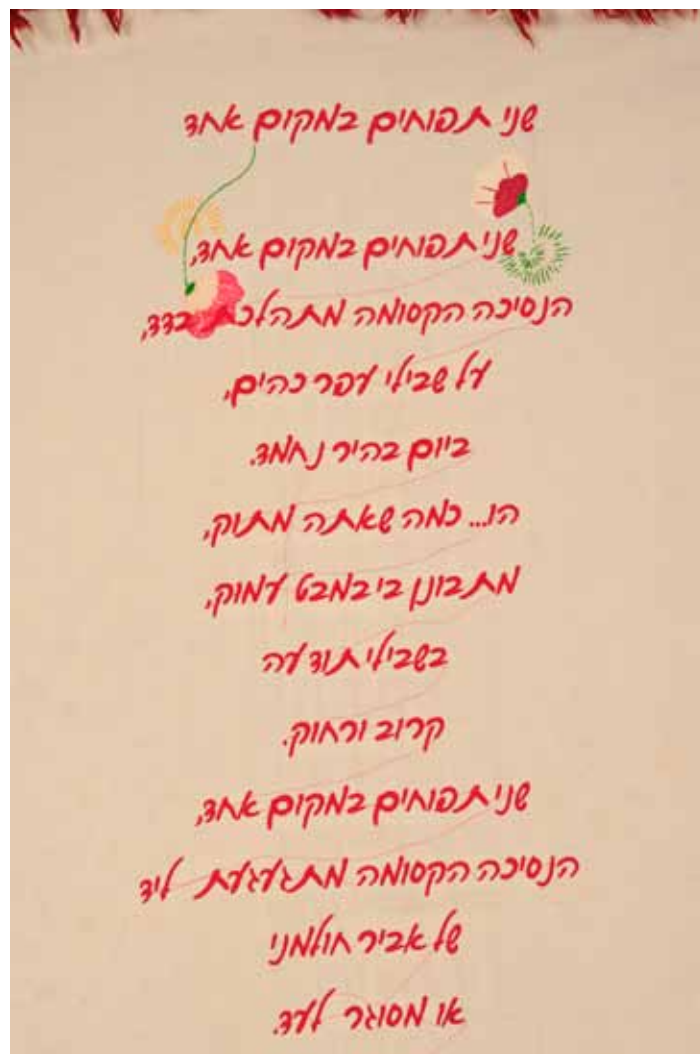 שני תפוחים במקום אחד
שני תפוחים במקום אחד,
הנסיכה הקסומה מתהלכת בדד,
על שבילי עפר כהים,
ביום בהיר נחמד.
הו... כמה שאתה מתוק,
מתבונן בי במבט עמוק,
בשבילי תודעה
קרוב ורחוק.
שני תפוחים במקום אחד,
הנסיכה הקסומה מתגעגעת ליד
של אביר חולמני
או מסוגר לעד.